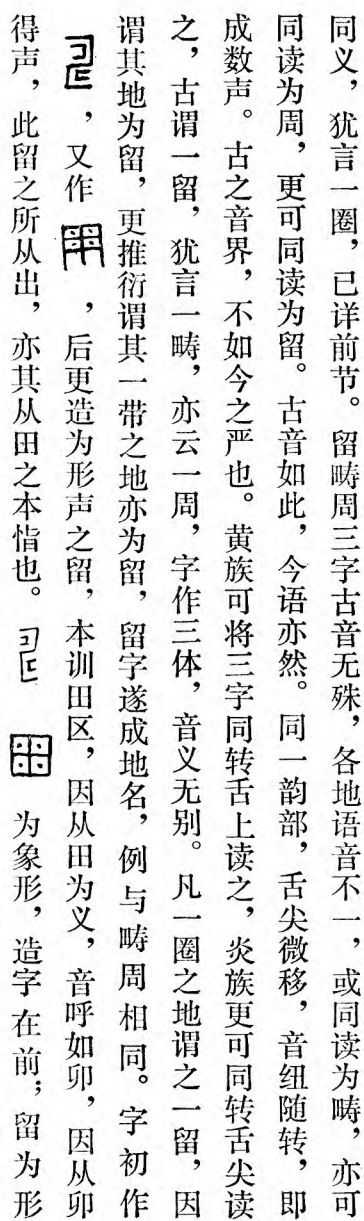 同义，犹言一圈，已详前节。留畴周三字古音无殊，各地语音不一，或同读为畴，亦可
同读为周，更可同读为留。古音如此，今语亦然。同一韵部，舌尖微移，音纽随转，即
成数声。古之音界，不如今之严也。黄族可将三字同转舌上读之，炎族更可同转舌尖读
之，古谓一留，犹言一畴，亦云一周，字作三体，音义无别。凡一圈之地谓之一留，因
谓其地为留，更推衍谓其一带之地亦为留，留字遂成地名，例与畴周相同。字初作
，又作，后更造为形声之留，本训田区，因从田为义，音呼如卯，因从卯
得声，此留之所从出，亦其从田之本恉也。为象形，造字在前；留为形